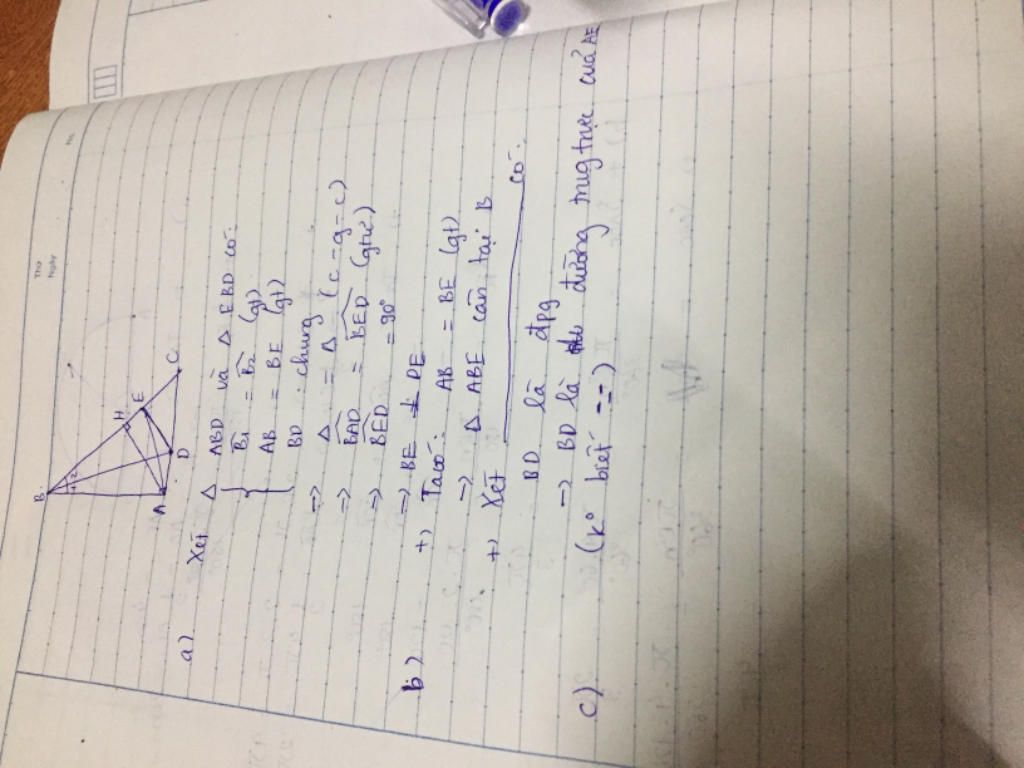 Thứ
Ngày
No.
B
1 2
H
E
A
D
C
a) Xét Δ ABD và Δ EBD có:
B₁ = B₂ (gt)
AB = BE (gt)
BD : chung
=> Δ = Δ (c-g-c)
=> BAD = BED (gtư)
=> BED = 90°
=> BE ⊥ DE
b) +) Ta có: AB = BE (gt)
=> Δ ABE cân tại B
+) Xét có:
BD là đpg
=> BD là đường trung trực của AE
c) (k° biết = =)